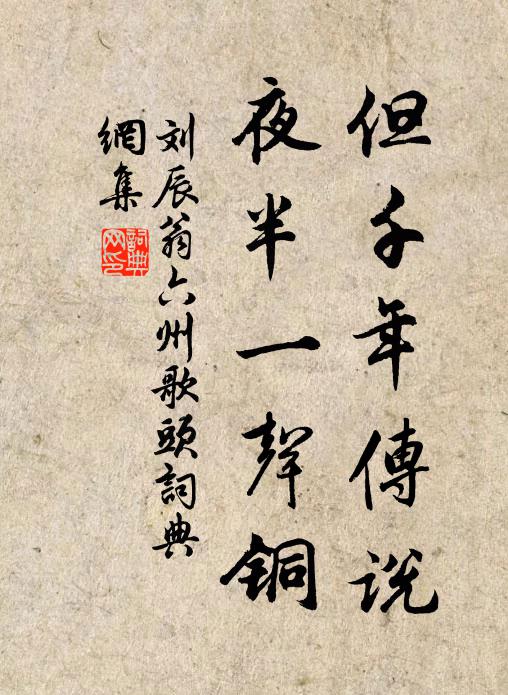 但千年傳說
夜半一聲銅
刘辰翁六州歌頭詞典
網集
詞典
网印